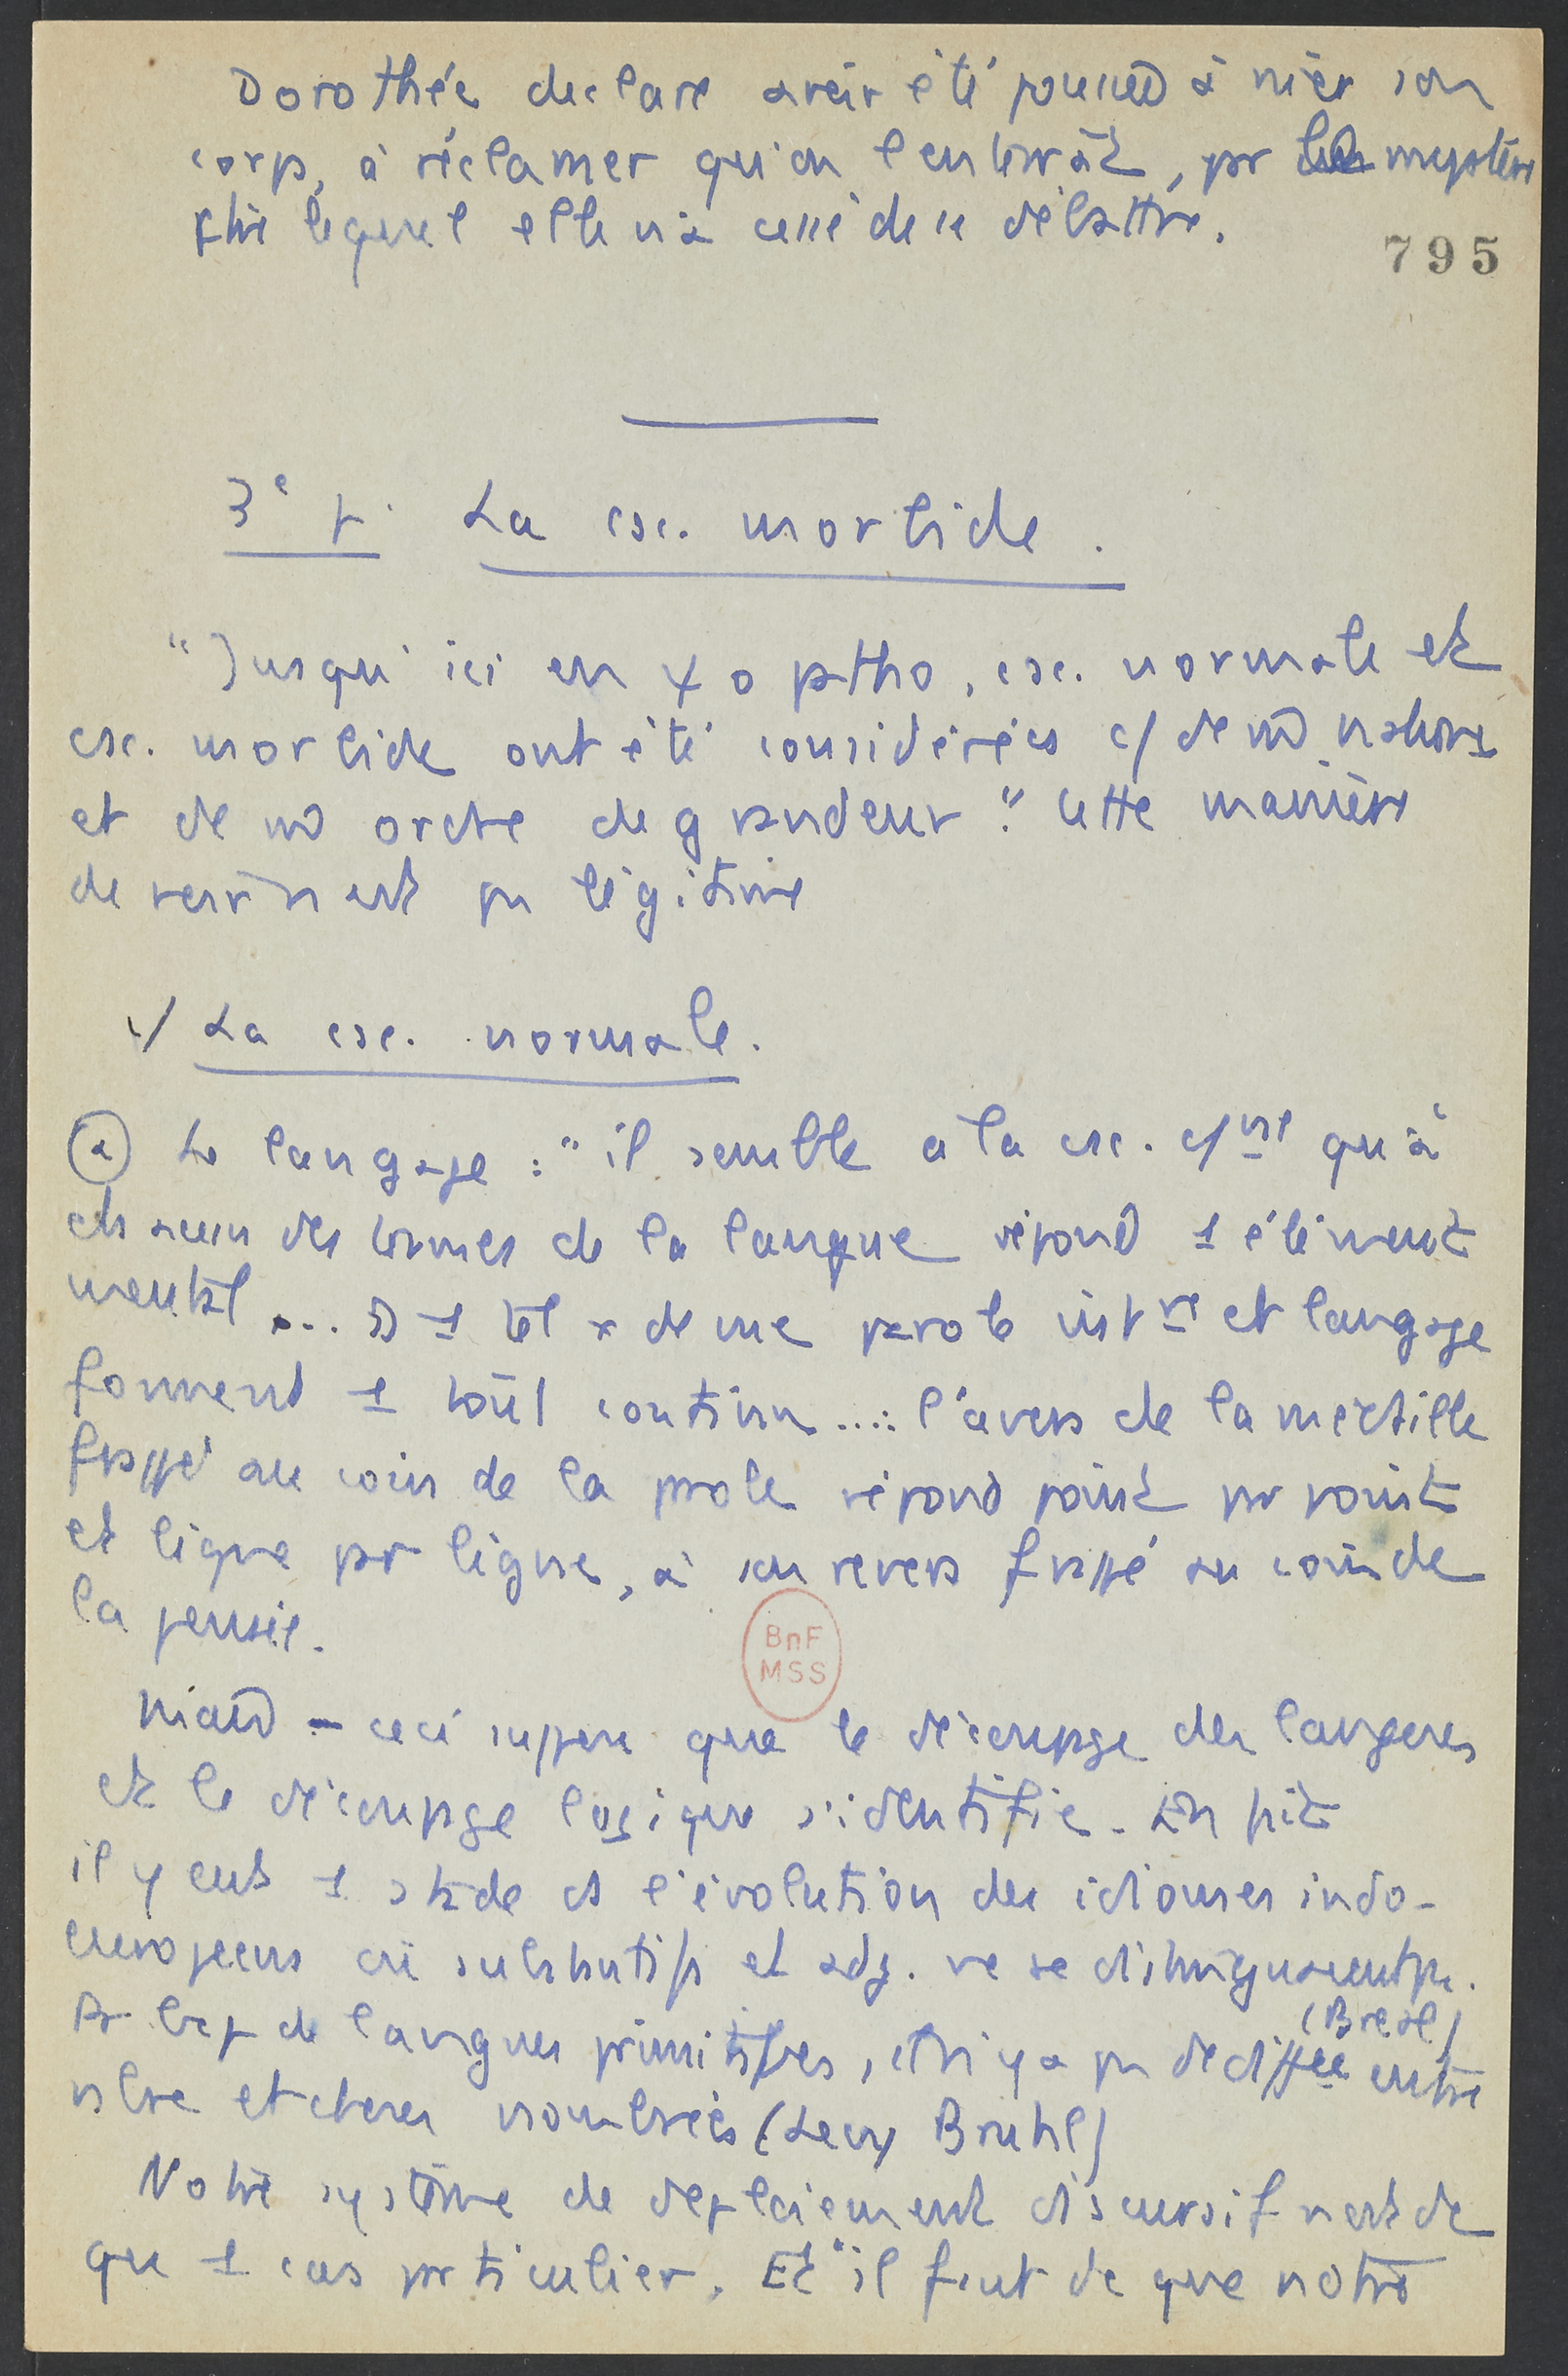 Dorothée declare avoir été poussé à nier son
corps, à réclamer qu'on l'enterrât, par mystère
lequel elle n'a cessé de se débattre.
795
3e p. La csc. morbide.
"Jusqu'ici en ψo patho, csc. normale et
csc. morbide ont été considérées c/ de m̂ nature
et de m̂ ordre de grandeur." Cette manière
de voir n'est pas légitime
1/ La csc. normale.
(a) Le langage : "il semble a la csc. c/ne qu'à
chacun des termes de la langue répond 1 élément
mental ... 1 tel de me parole intre et langage
forment 1 tout continu .... : l'avers de la médaille
frappé au coin de la parole répond point par point
et ligne par ligne, à son revers frappé au coin de
la pensée.
Miand - ceci suppose que le découpage des langues
et le découpage logique s'identifie. En fait
il y eut 1 stade ds l'évolution des idiomes indo-
européens où substantifs et adj. ne se distinguaient pas.
(Breal)
Ds bcp de langues primitives, il n'y a pas de différce entre
nbre et choses nombrées (Levy Bruhl)
Notre système de deploiement discursif n'est dc
que 1 cas particulier. Et "il faut dc que notre
BnF
MSS